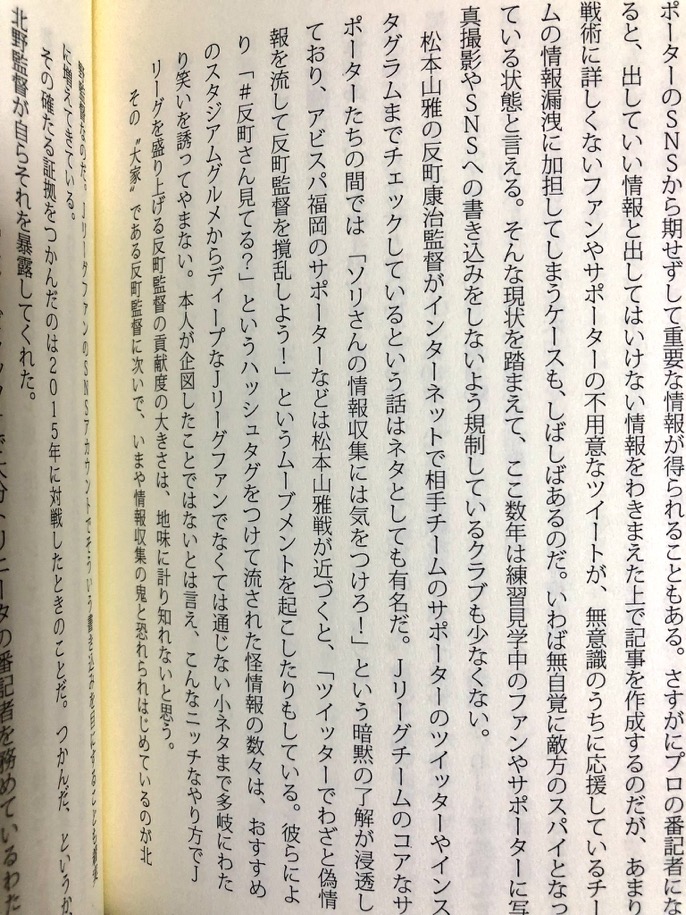 ポーターのSNSから期せずして重要な情報が得られることもある。さすがにプロの番記者にな
ると、出していい情報と出してはいけない情報をわきまえた上で記事を作成するのだが、あまり
戦術に詳しくないファンやサポーターの不用意なツイートが、無意識のうちに応援しているチー
ムの情報漏洩に加担してしまうケースも、しばしばあるのだ。いわば無自覚に敵方のスパイとなっ
ている状態と言える。そんな現状を踏まえて、ここ数年は練習見学中のファンやサポーターに写
真撮影やSNSへの書き込みをしないよう規制しているクラブも少なくない。
松本山雅の反町康治監督がインターネットで相手チームのサポーターのツイッターやインス
タグラムまでチェックしているという話はネタとしても有名だ。Jリーグチームのコアなサ
ポーターたちの間では「ソリさんの情報収集には気をつけろ!」という暗黙の了解が浸透し
ており、アビスパ福岡のサポーターなどは松本山雅戦が近づくと、「ツイッターでわざと偽情
報を流して反町監督を撹乱しよう!」というムーブメントを起こしたりもしている。彼らによ
り「#反町さん見てる?」というハッシュタグをつけて流された怪情報の数々は、おすすめ
のスタジアムグルメからディープなJリーグファンでなくては通じない小ネタまで多岐にわた
り笑いを誘ってやまない。本人が企図したことではないとは言え、こんなニッチなやり方でJ
リーグを盛り上げる反町監督の貢献度の大きさは、地味に計り知れないと思う。
その〝大家〟である反町監督に次いで、いまや情報収集の鬼と恐れられはじめているのが北
野監督なのだ。JリーグファンのSNSアカウントでそういう書き込みを目にすることも
に増えてきている。
その確たる証拠をつかんだのは2015年に対戦したときのことだ。つかんだ、というか、
北野監督が自らそれを暴露してくれた。
で大分トリニータの番記者を務めているわた